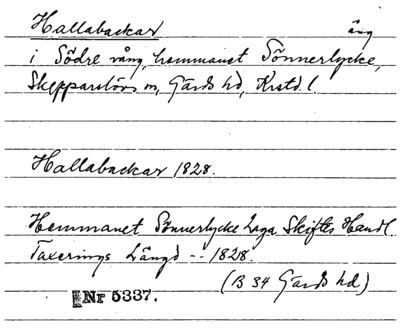 Hallabackar äng
i Södre vång, hemmanet Sönnerlycke,
Skepparslövs sn, Gärds hd, Krstd. l.
Hallabackar 1828.
Hemmanet Sönnerlycke Laga Skiftes Handl.
Taxerings Längd -- 1828.
(B 34 Gärds hd)
Nr 5337.